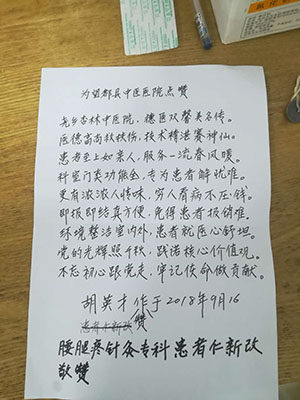 为望都县中医医院点赞
尧乡杏林中医院，德医双馨美名传。
医德高尚救扶伤，技术精湛赛神仙。
患者至上如亲人，服务一流春风暖。
科室门类功能全，专为患者解忧难。
更有浓浓人情味，穷人看病不压钱。
即报即结真方便，免得患者报销难。
环境整洁室内外，患者就医心舒坦。
党的光辉照千秋，践诺核心价值观。
不忘初心跟党走，牢记使命做贡献。
胡英才作于2018年9月16
赞
腰腿疼针灸专科患者仁新改
敬赞